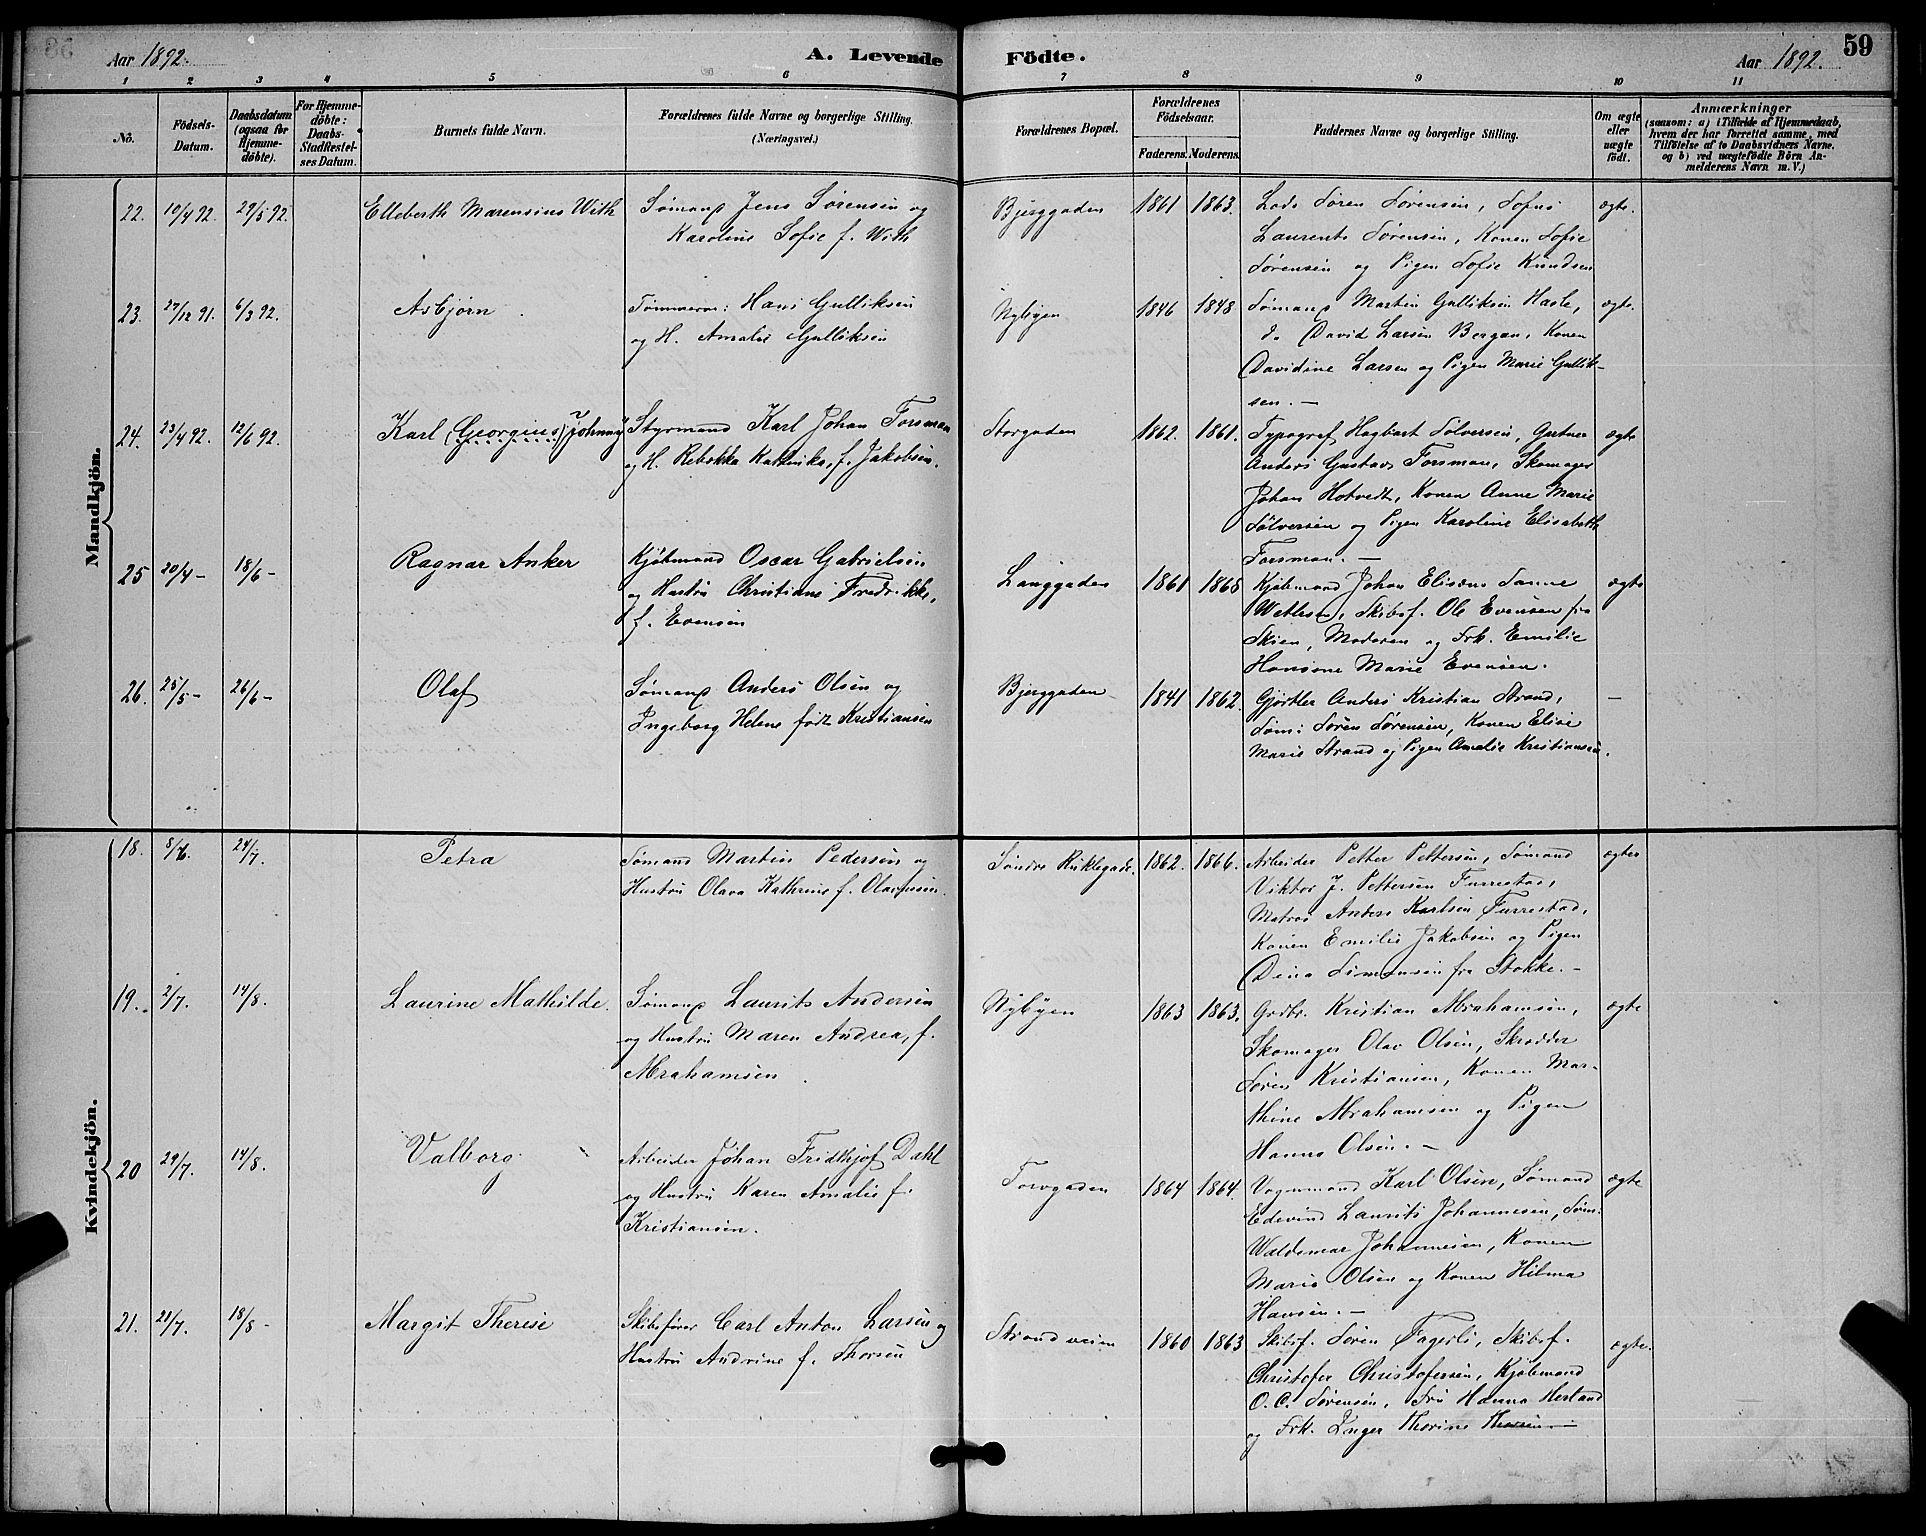 Aar 1892.
A. Levende Födte.
Aar 1892.
59
1 2 3 4 5 6 7 8 9 10 11
No.
Födsels-Datum.
Daabsdatum (ogsaa for Hjemme-döbte).
For Hjemme-döbte: Daabs-Stadfæstel-ses Datum.
Barnets fulde Navn.
Forældrenes fulde Navne og borgerlige Stilling. (Næringsvei.)
Forældrenes Bopæl.
Forældrenes Födselsaar.
Faderens. Moderens.
Faddernes Navne og borgerlige Stilling.
Om ægte eller uægte födt.
Anmærkninger
(saasom: a) i Tilfælde af Hjemmedaab,
hvem der har forrettet samme, med
Tilföielse af to Daabsvidners Navne.
og b) ved uægtefödte Börn An-
melderens Navn m. V.)
Mandkjön.
22. 10/4 92. 29/5 92. Elleberth Marensius With
Sømand Jens Sørensen og
Karoline Sofie f. With
Bjerggaden 1861 1863.
Lods Søren Sørensen, Sofus
Laurents Sørensen, Konen Sofie
Sørensen og Pigen Sofie Knudsen
ægte.
23. 27/12 91. 6/3 92. Asbjørn
Tømmerm: Hans Gulliksen
og H. Amalie Gulliksen
Nybyen 1846 1848
Sømand Martin Gulliksen Hasle,
do David Larsen Bergan, Konen
Davidine Larsen og Pigen Marie Gullik-
sen. —
ægte.
24. 23/4 92. 12/6 92. Karl (Georgius) Johnny
Styrmand Karl Johan Forsman
og H. Rebekka Kathinka, f. Jakobsen.
Storgaden 1862. 1861.
Typograf Hagbart Sølversen, Gartner
Anders Gustav Forsman, Skomager
Johan Hotvedt, Konen Anne Marie
Sølversen og Pigen Karoline Elisabeth
Forsman. —
ægte
25 20/4 - 18/6 - Ragnar Anker
Kjøbmand Oscar Gabrielsen
og Hustru Christiane Fredrikke,
f. Evensen
Langgaden 1861 1868
Kjøbmand Johan Elisæus Sanne
Wetlesen, Skibsf. Ole Evensen fra
Skien, Moderen og Frk. Emilie
Hansine Marie Evensen.
ægte
26. 25/5 - 26/6 - Olaf
Sømand Anders Olsen og
Ingeborg Helene født Kristiansen
Bjerggaden 1841 1862.
Gjørtler Anders Kristian Strand,
Søm: Søren Sørensen, Konen Elise
Marie Strand og Pigen Amalie Kristiansen.
—
Kvindekjön.
18. 8/6. 24/7. Petra
Sømand Martin Pedersen og
Hustru Olava Kathrine f. Olavesen
Søndre 1862. 1866.
Arbeider Petter Pettersen, Sømand
Viktor J. Pettersen Furrestad,
Matros Anders Karlsen Furrestad,
Konen Emilie Jakobsen og Pigen
Dina Simonsen fra Stokke. —
ægte
19. 2/7. 14/8. Laurine Mathilde.
Sømand Laurits Andersen
og Hustru Maren Andrea, f.
Abrahamsen
Nybyen 1863 1863.
Grdbr. Kristian Abrahamsen,
Skomager Olav Olsen, Skrædder
Søren Kristiansen, Konen Mar-
thine Abrahamsen og Pigen
Hanna Olsen. —
ægte
20 29/7. 14/8. Valborg
Arbeider Johan Fridthjof Dahl
og Hustru Karen Amalie f.
Kristiansen.
Torvgaden 1864 1864.
Vognmand Karl Olsen, Sømand
Edevind Laurits Johannesen, Søm:
Waldemar Johannesen, Konen
Marie Olsen og Konen Hilma
Hansen. —
ægte
21. 21/7. 18/8 - Margit Therese
Skibsfører Carl Anton Larsen og
Hustru Andrine f. Thorsen
Strandveien 1860 1863
Skibsf. Søren Fagerli, Skibsf.
Christofer Christofersen, Kjøbmand
O. C. Sørensen, Fru Hanna Herland
og Frk. Inger Thorine Thorsen —
ægte.